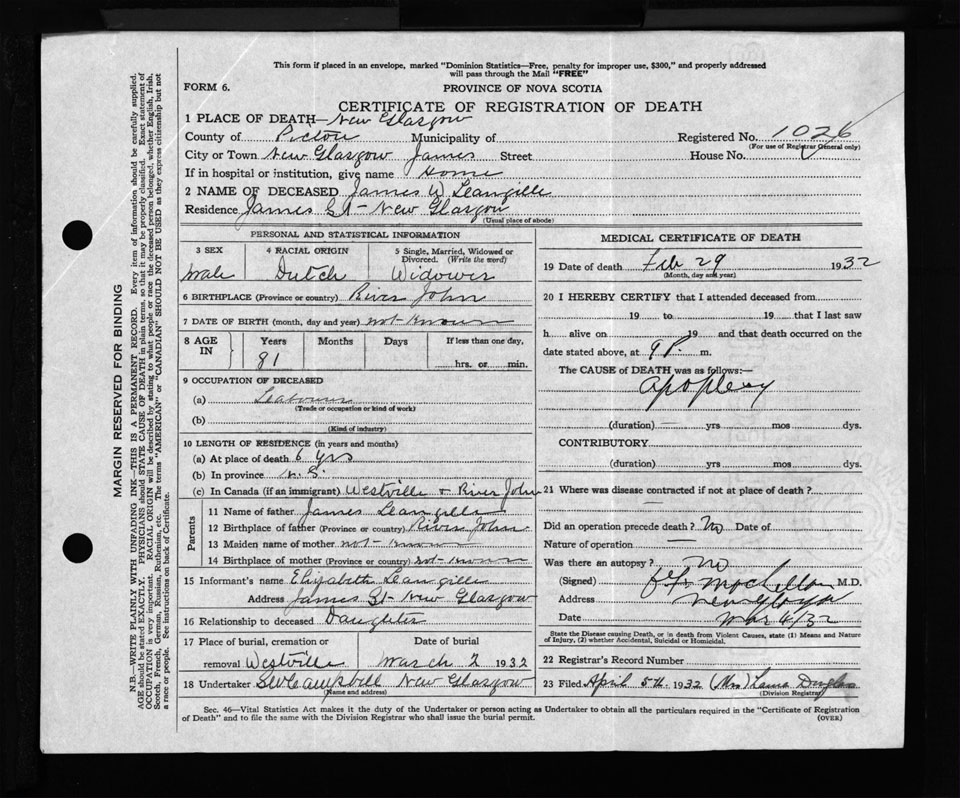 This form if placed in an envelope, marked "Dominion Statistics—Free, penalty for improper use, $300," and properly addressed
will pass through the Mail "FREE"
FORM 6.
PROVINCE OF NOVA SCOTIA
CERTIFICATE OF REGISTRATION OF DEATH
1 PLACE OF DEATH—New Glasgow
County of Pictou Municipality of Registered No. 1026
(For use of Registrar General only)
City or Town New Glasgow James Street House No.
If in hospital or institution, give name Home
2 NAME OF DECEASED James W Leangille
Residence James St - New Glasgow
(Usual place of abode)
PERSONAL AND STATISTICAL INFORMATION
3 SEX 4 RACIAL ORIGIN 5 Single, Married, Widowed or
Divorced. (Write the word)
Male Dutch Widower
6 BIRTHPLACE (Province or country) River John
7 DATE OF BIRTH (month, day and year) not-known
8 AGE IN Years Months Days If less than one day,
81 hrs. or min.
9 OCCUPATION OF DECEASED
(a) Leabourer
(Trade or occupation or kind of work)
(b)
(Kind of industry)
10 LENGTH OF RESIDENCE (in years and months)
(a) At place of death 6 yrs
(b) In province N. S.
(c) In Canada (if an immigrant) Westville + River John
Parents
11 Name of father James Leangille
12 Birthplace of father (Province or country) River John
13 Maiden name of mother not-known
14 Birthplace of mother (Province or country) not-known
15 Informant's name Elizabeth Leangille
Address James St - New Glasgow
16 Relationship to deceased Daughter
17 Place of burial, cremation or Date of burial
removal Westville March 2 1932
18 Undertaker New Glasgow
(Name and address)
MEDICAL CERTIFICATE OF DEATH
19 Date of death Feb 29 1932
(Month, day and year)
20 I HEREBY CERTIFY that I attended deceased from
19 to 19 that I last saw
h alive on 19 and that death occurred on the
date stated above, at 9 P. m.
The CAUSE of DEATH was as follows:—
apoplexy
(duration) — yrs mos dys.
CONTRIBUTORY
(duration) yrs mos dys.
21 Where was disease contracted if not at place of death?
—
Did an operation precede death? No Date of
Nature of operation —
Was there an autopsy? No
(Signed) M.D.
Address New Glasgow
Date Mar 4/32
State the Disease causing Death, or in death from Violent Causes, state (1) Means and Nature
of Injury, (2) whether Accidental, Suicidal or Homicidal.
22 Registrar's Record Number
23 Filed April 5th 1932 (Mrs) Laura Douglas
(Division Registrar)
Sec. 46—Vital Statistics Act makes it the duty of the Undertaker or person acting as Undertaker to obtain all the particulars required in the "Certificate of Registration
of Death" and to file the same with the Division Registrar who shall issue the burial permit.
(OVER)
MARGIN RESERVED FOR BINDING
N.B.—WRITE PLAINLY WITH UNFADING INK—THIS IS A PERMANENT RECORD. Every item of information should be carefully supplied.
AGE should be stated EXACTLY. PHYSICIANS should STATE CAUSE OF DEATH in plain terms, so that it may be properly classified. Exact statement of
OCCUPATION is very important. RACIAL ORIGIN will be described by stating to what people or race the deceased person belonged, whether English, Irish,
Scotch, French, German, Russian, Ruthenian, etc. The terms "AMERICAN" or "CANADIAN" SHOULD NOT BE USED as they express citizenship but not
a race or people. See instructions on back of Certificate.